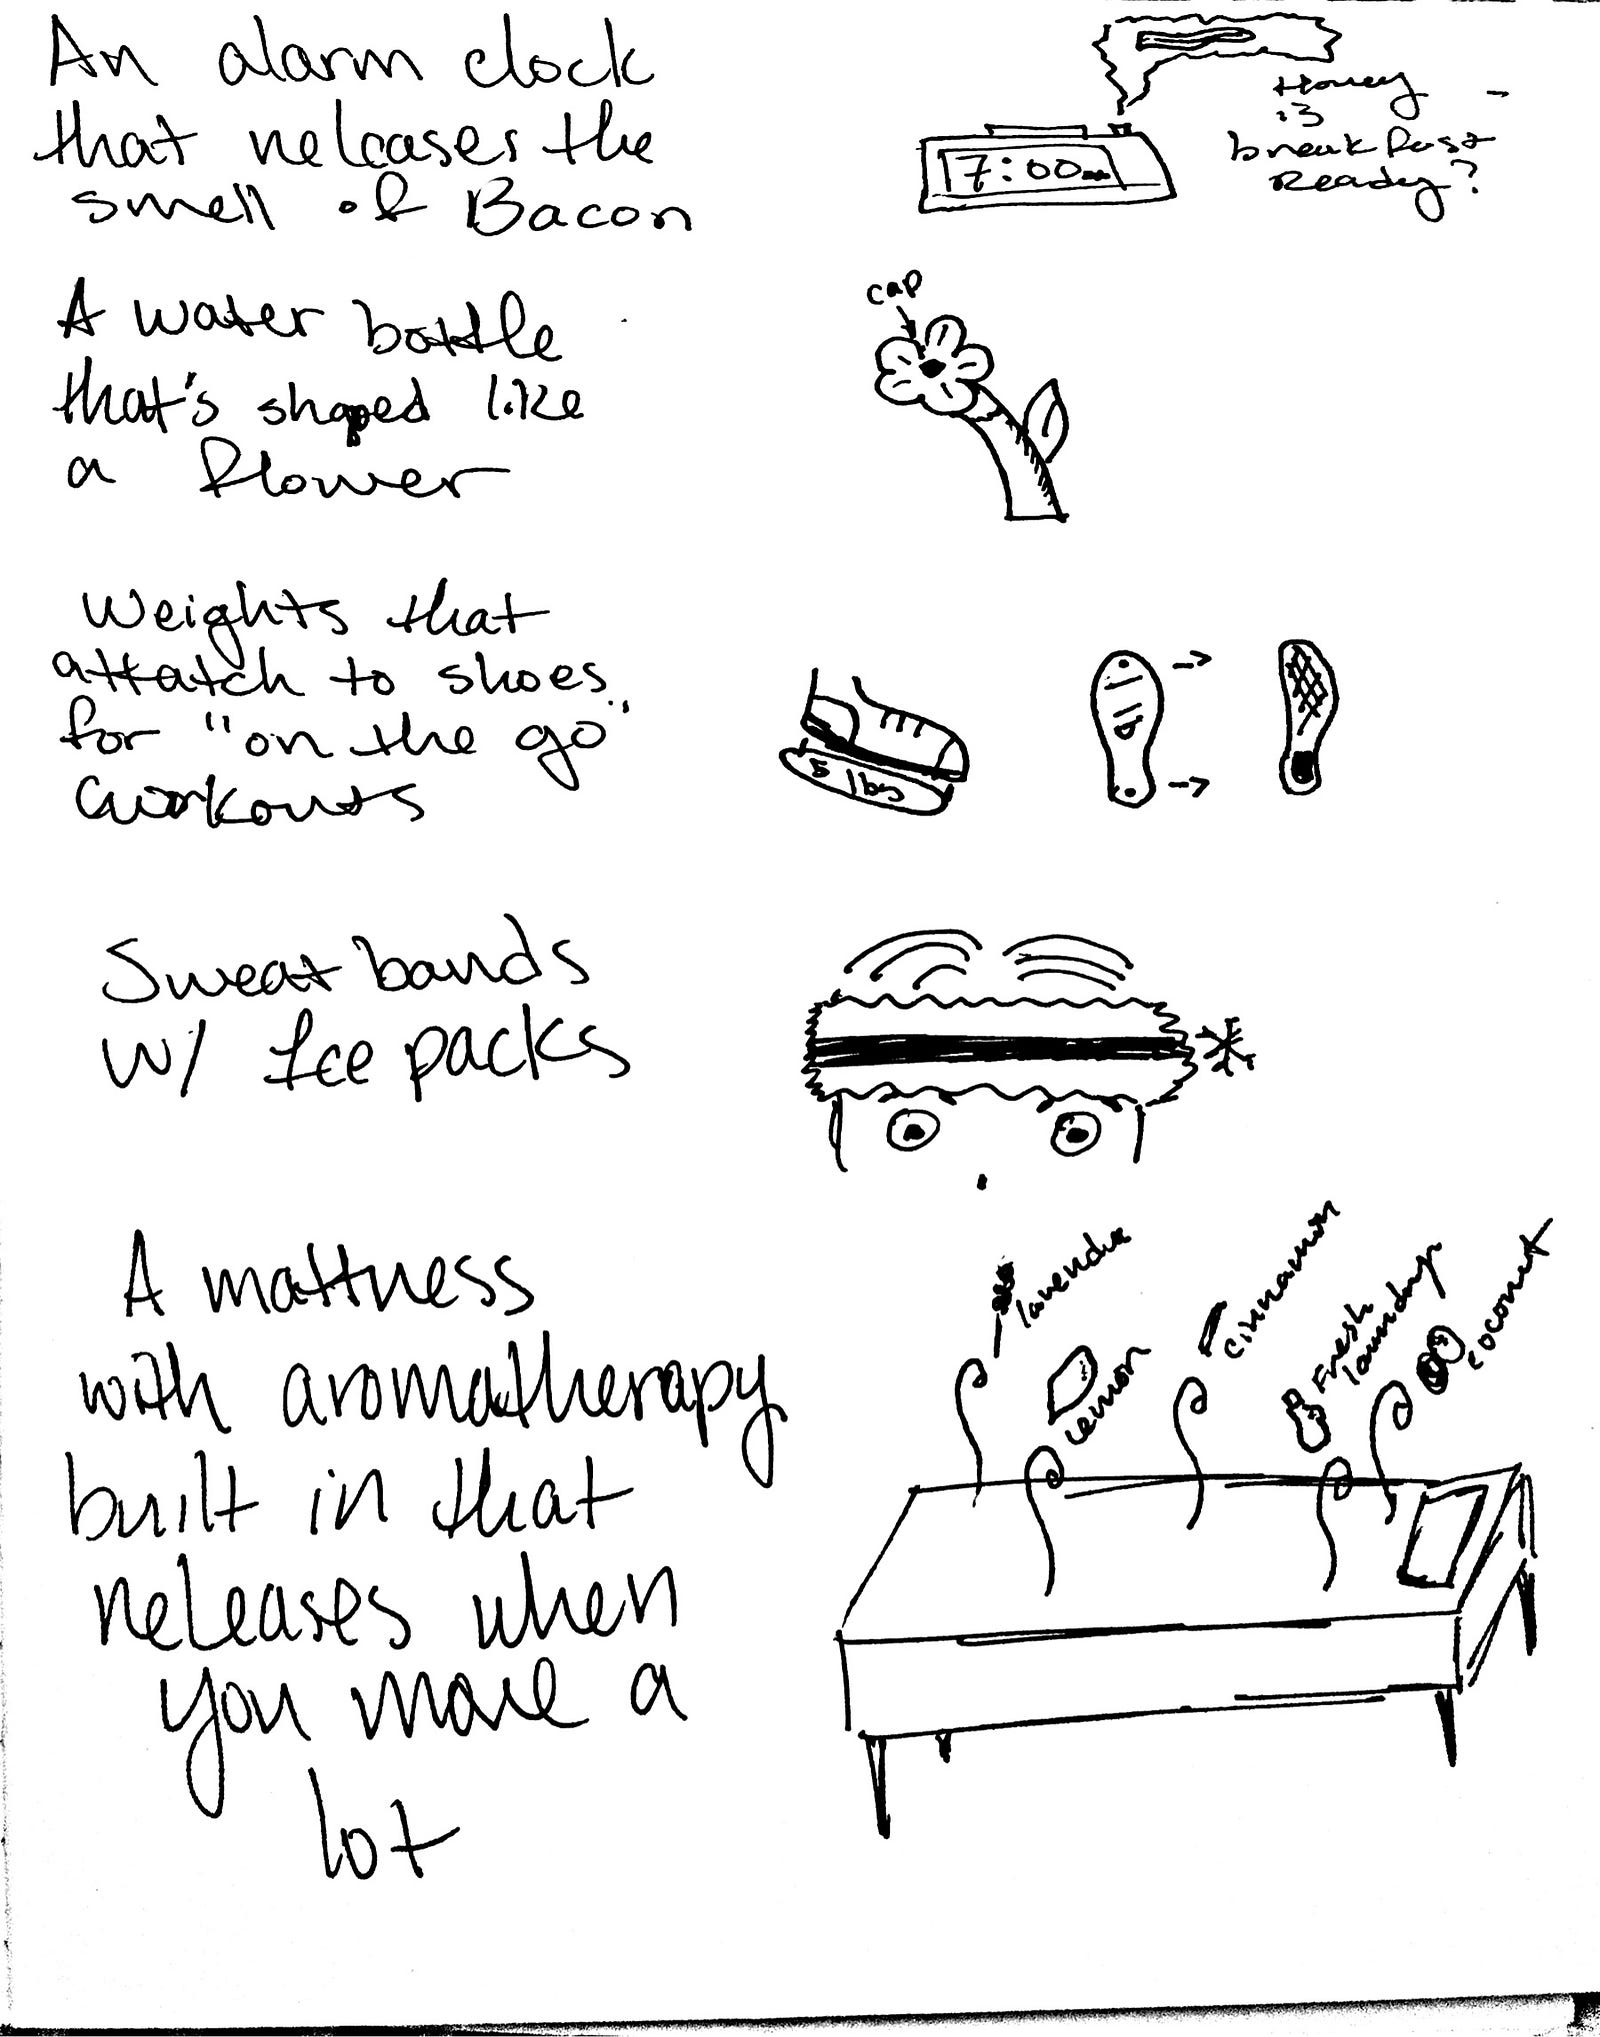 An alarm clock
that releases the
smell of Bacon
7:00am
Honey
is
breakfast
Ready?
A water bottle
that's shaped like
a flower
cap
Weights that
attatch to shoes
for "on the go"
workouts
5 lbs
Sweat bands
w/ Ice packs
A mattress
with aromatherapy
built in that
releases when
you move a
lot
lavender
lemon
cinnamon
Fresh
laundry
coconut